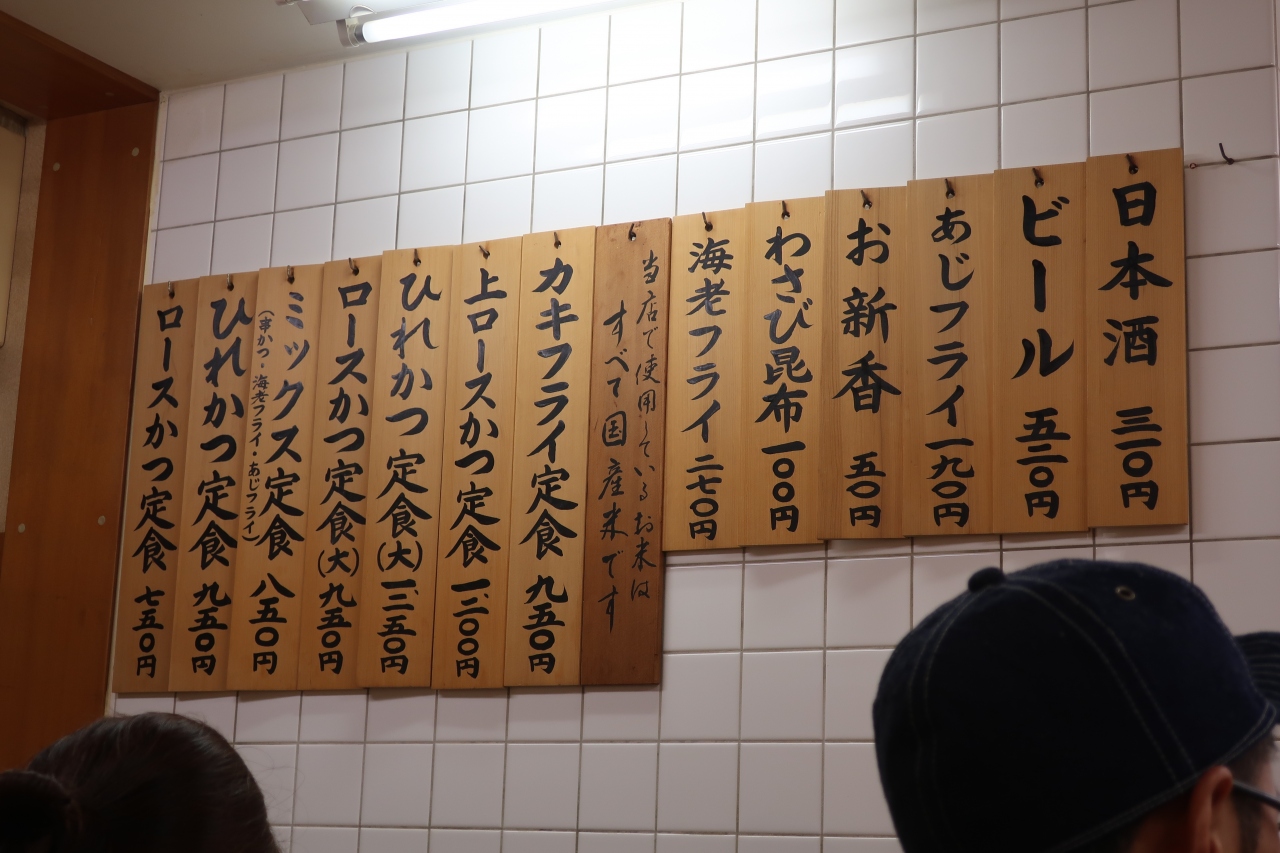 日本酒 三一〇円
ビール 五二〇円
あじフライ 一九〇円
お新香 五〇円
わさび昆布 一〇〇円
海老フライ 二七〇円
当店で使用しているお米は
すべて国産米です
カキフライ定食 九五〇円
上ロースかつ定食 一、二〇〇円
ひれかつ定食(大) 一、二五〇円
ロースかつ定食(大) 九五〇円
ミックス定食 八五〇円
(串かつ・海老フライ・あじフライ)
ひれかつ定食 九五〇円
ロースかつ定食 七五〇円